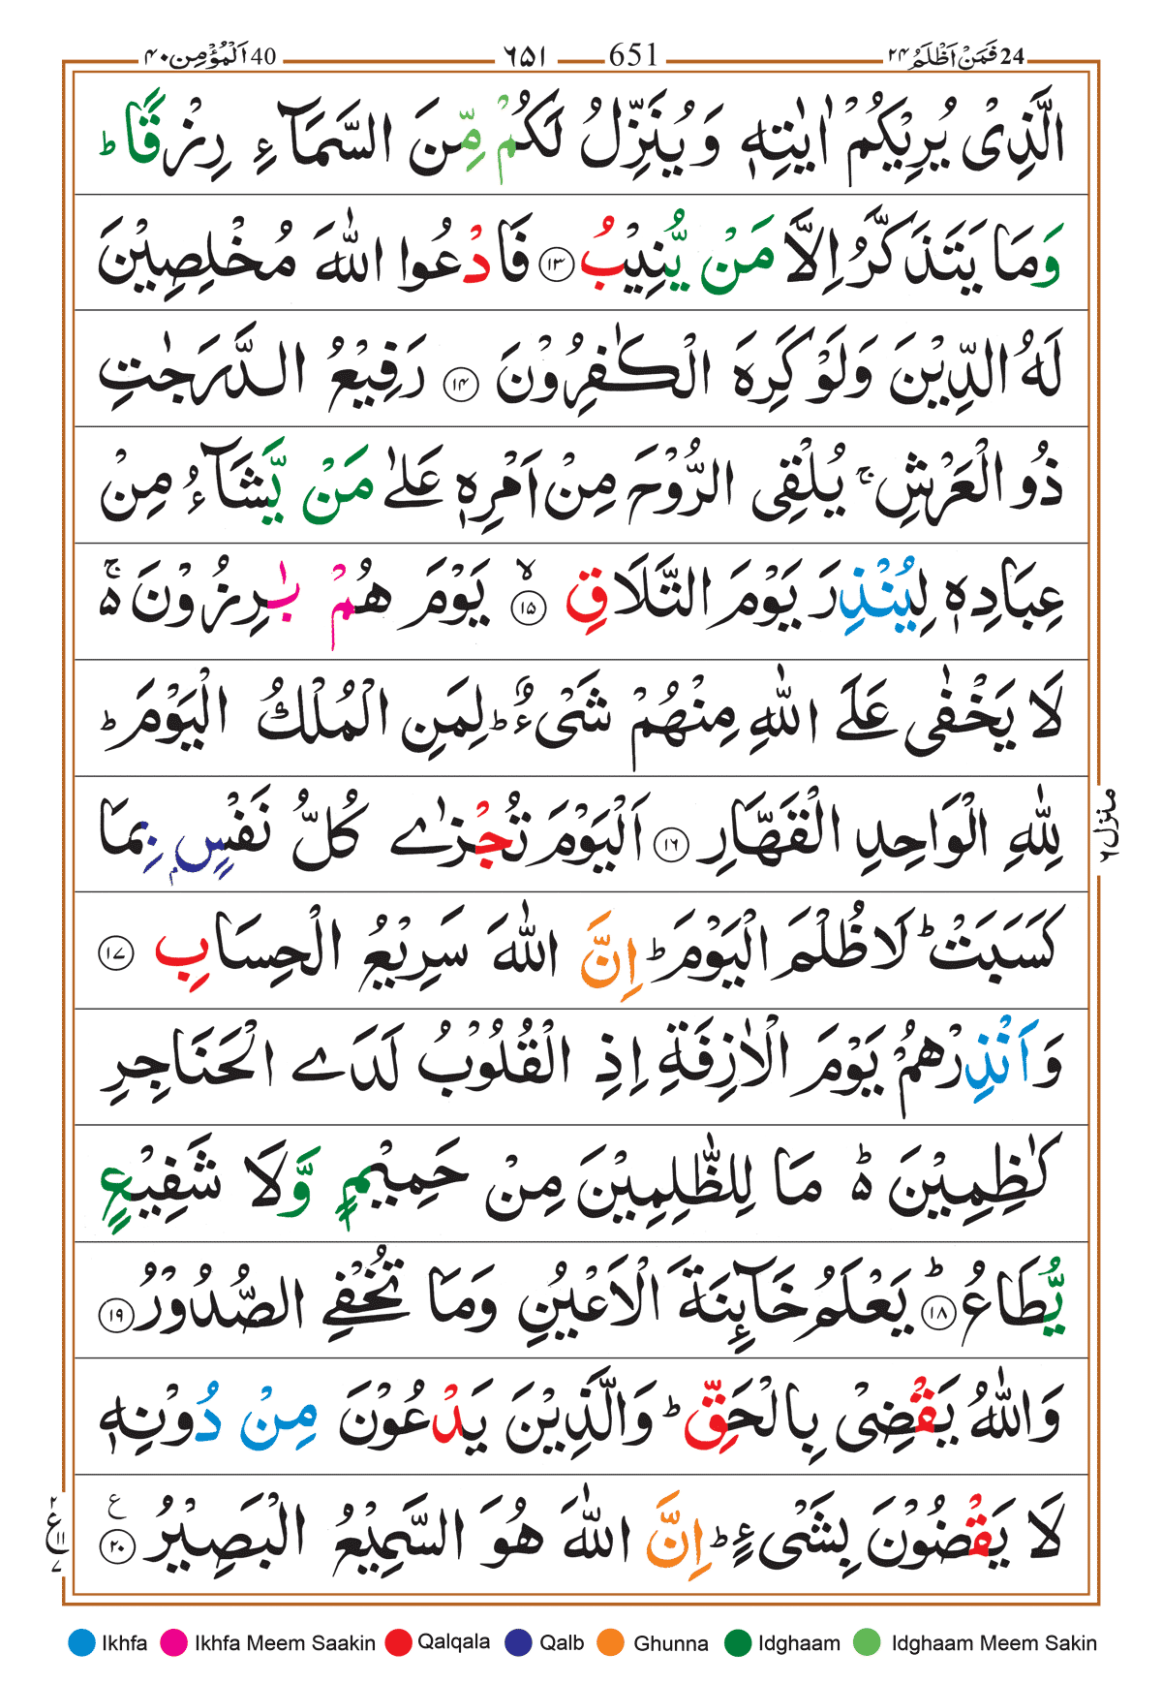 24 فَمَنْ اَظْلَمُ ۲۴ 651 ٦٥١ 40 اَلْمُؤْمِن ۴۰
الَّذِیْ یُرِیْكُمْ اٰیٰتِهٖ وَیُنَزِّلُ لَكُمْ مِّنَ السَّمَآءِ رِزْقًا ؕ
وَمَا یَتَذَكَّرُ اِلَّا مَنْ یُّنِیْبُ ۱۳ فَادْعُوا اللّٰهَ مُخْلِصِیْنَ
لَهُ الدِّیْنَ وَلَوْ كَرِهَ الْكٰفِرُوْنَ ۱۴ رَفِیْعُ الدَّرَجٰتِ
ذُو الْعَرْشِ ۚ یُلْقِی الرُّوْحَ مِنْ اَمْرِهٖ عَلٰی مَنْ یَّشَآءُ مِنْ
عِبَادِهٖ لِیُنْذِرَ یَوْمَ التَّلَاقِ ۙ ۱۵ یَوْمَ هُمْ بٰرِزُوْنَ ۵ۚ
لَا یَخْفٰی عَلَی اللّٰهِ مِنْهُمْ شَیْءٌ ؕ لِمَنِ الْمُلْكُ الْیَوْمَ ؕ
لِلّٰهِ الْوَاحِدِ الْقَهَّارِ ۱۶ اَلْیَوْمَ تُجْزٰی كُلُّ نَفْسٍۭ بِمَا
كَسَبَتْ ؕ لَا ظُلْمَ الْیَوْمَ ؕ اِنَّ اللّٰهَ سَرِیْعُ الْحِسَابِ ۱۷
وَاَنْذِرْهُمْ یَوْمَ الْاٰزِفَةِ اِذِ الْقُلُوْبُ لَدَی الْحَنَاجِرِ
كٰظِمِیْنَ ۵ؕ مَا لِلظّٰلِمِیْنَ مِنْ حَمِیْمٍ وَّلَا شَفِیْعٍ
یُّطَاعُ ؕ ۱۸ یَعْلَمُ خَآئِنَةَ الْاَعْیُنِ وَمَا تُخْفِی الصُّدُوْرُ ۱۹
وَاللّٰهُ یَقْضِیْ بِالْحَقِّ ؕ وَالَّذِیْنَ یَدْعُوْنَ مِنْ دُوْنِهٖ
لَا یَقْضُوْنَ بِشَیْءٍ ؕ اِنَّ اللّٰهَ هُوَ السَّمِیْعُ الْبَصِیْرُ ۲۰ ع
منزل ۶
۲ ع ۱۱ ۷
Ikhfa Ikhfa Meem Saakin Qalqala Qalb Ghunna Idghaam Idghaam Meem Sakin